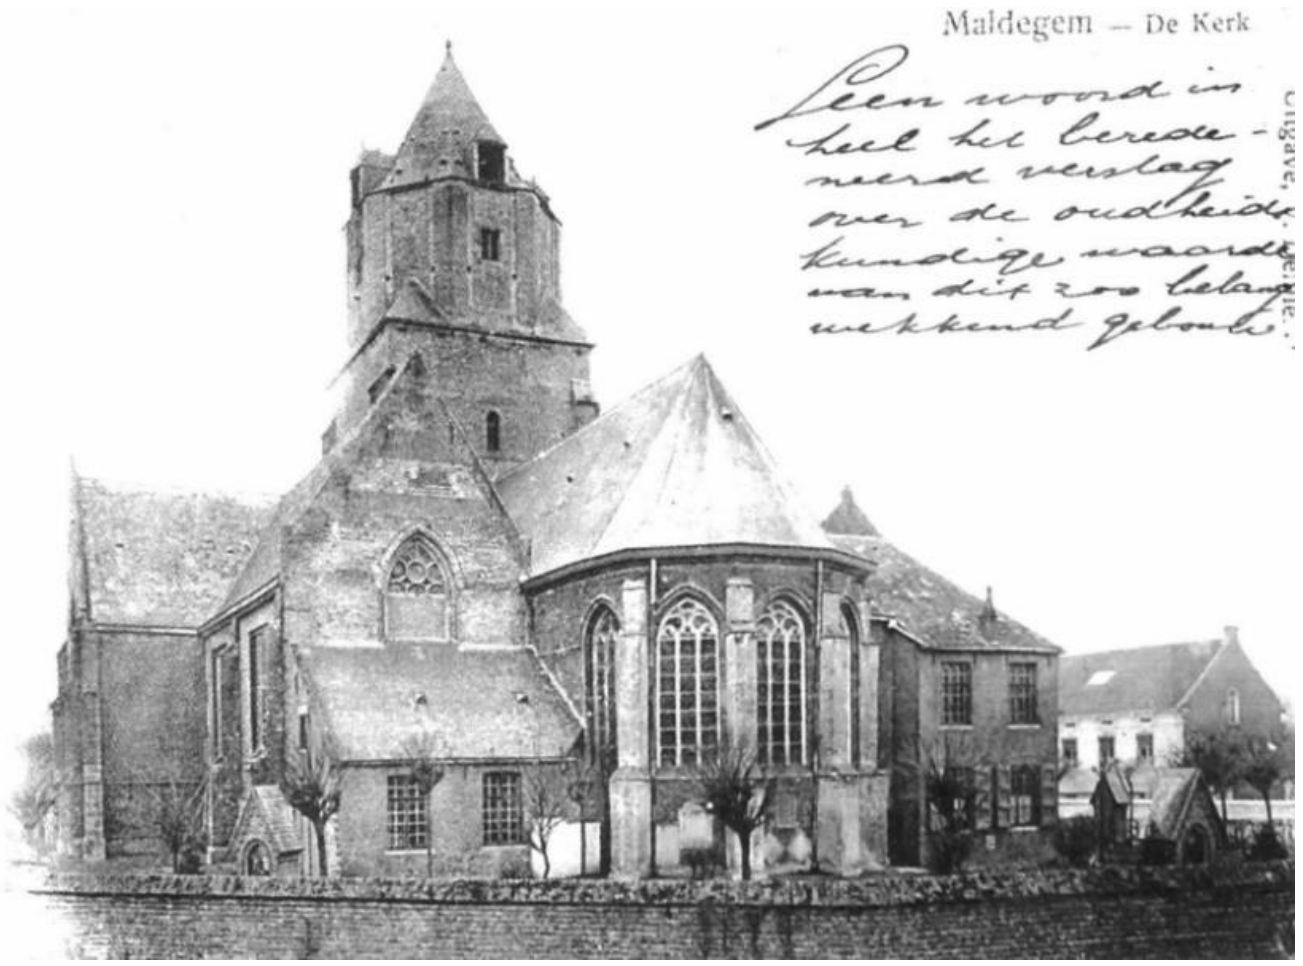 Maldegem — De Kerk
Geen woord in
heel het berede-
neerd verslag
over de oudheids
kundige waarde
van dit zoo belang
wekkend gebouw
Uitgave,